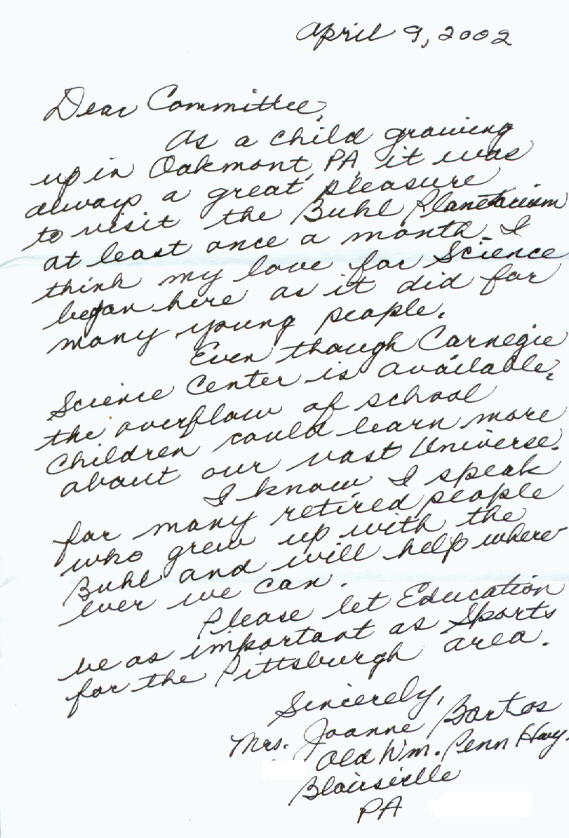 April 9, 2002
Dear Committee,
As a child growing
up in Oakmont, PA it was
always a great pleasure
to visit the Buhl Planetarium
at least once a month. I
think my love for Science
began here as it did for
many young people.
Even though Carnegie
Science Center is available,
the overflow of school
Children could learn more
about our vast Universe.
I know I speak
for many retired people
who grew up with the
Buhl and will help where-
ever we can.
Please let Education
be as important as Sports
for the Pittsburgh area.
Sincerely,
Mrs. Joanne Bartos
Old Wm. Penn Hwy.
Blairsville
PA